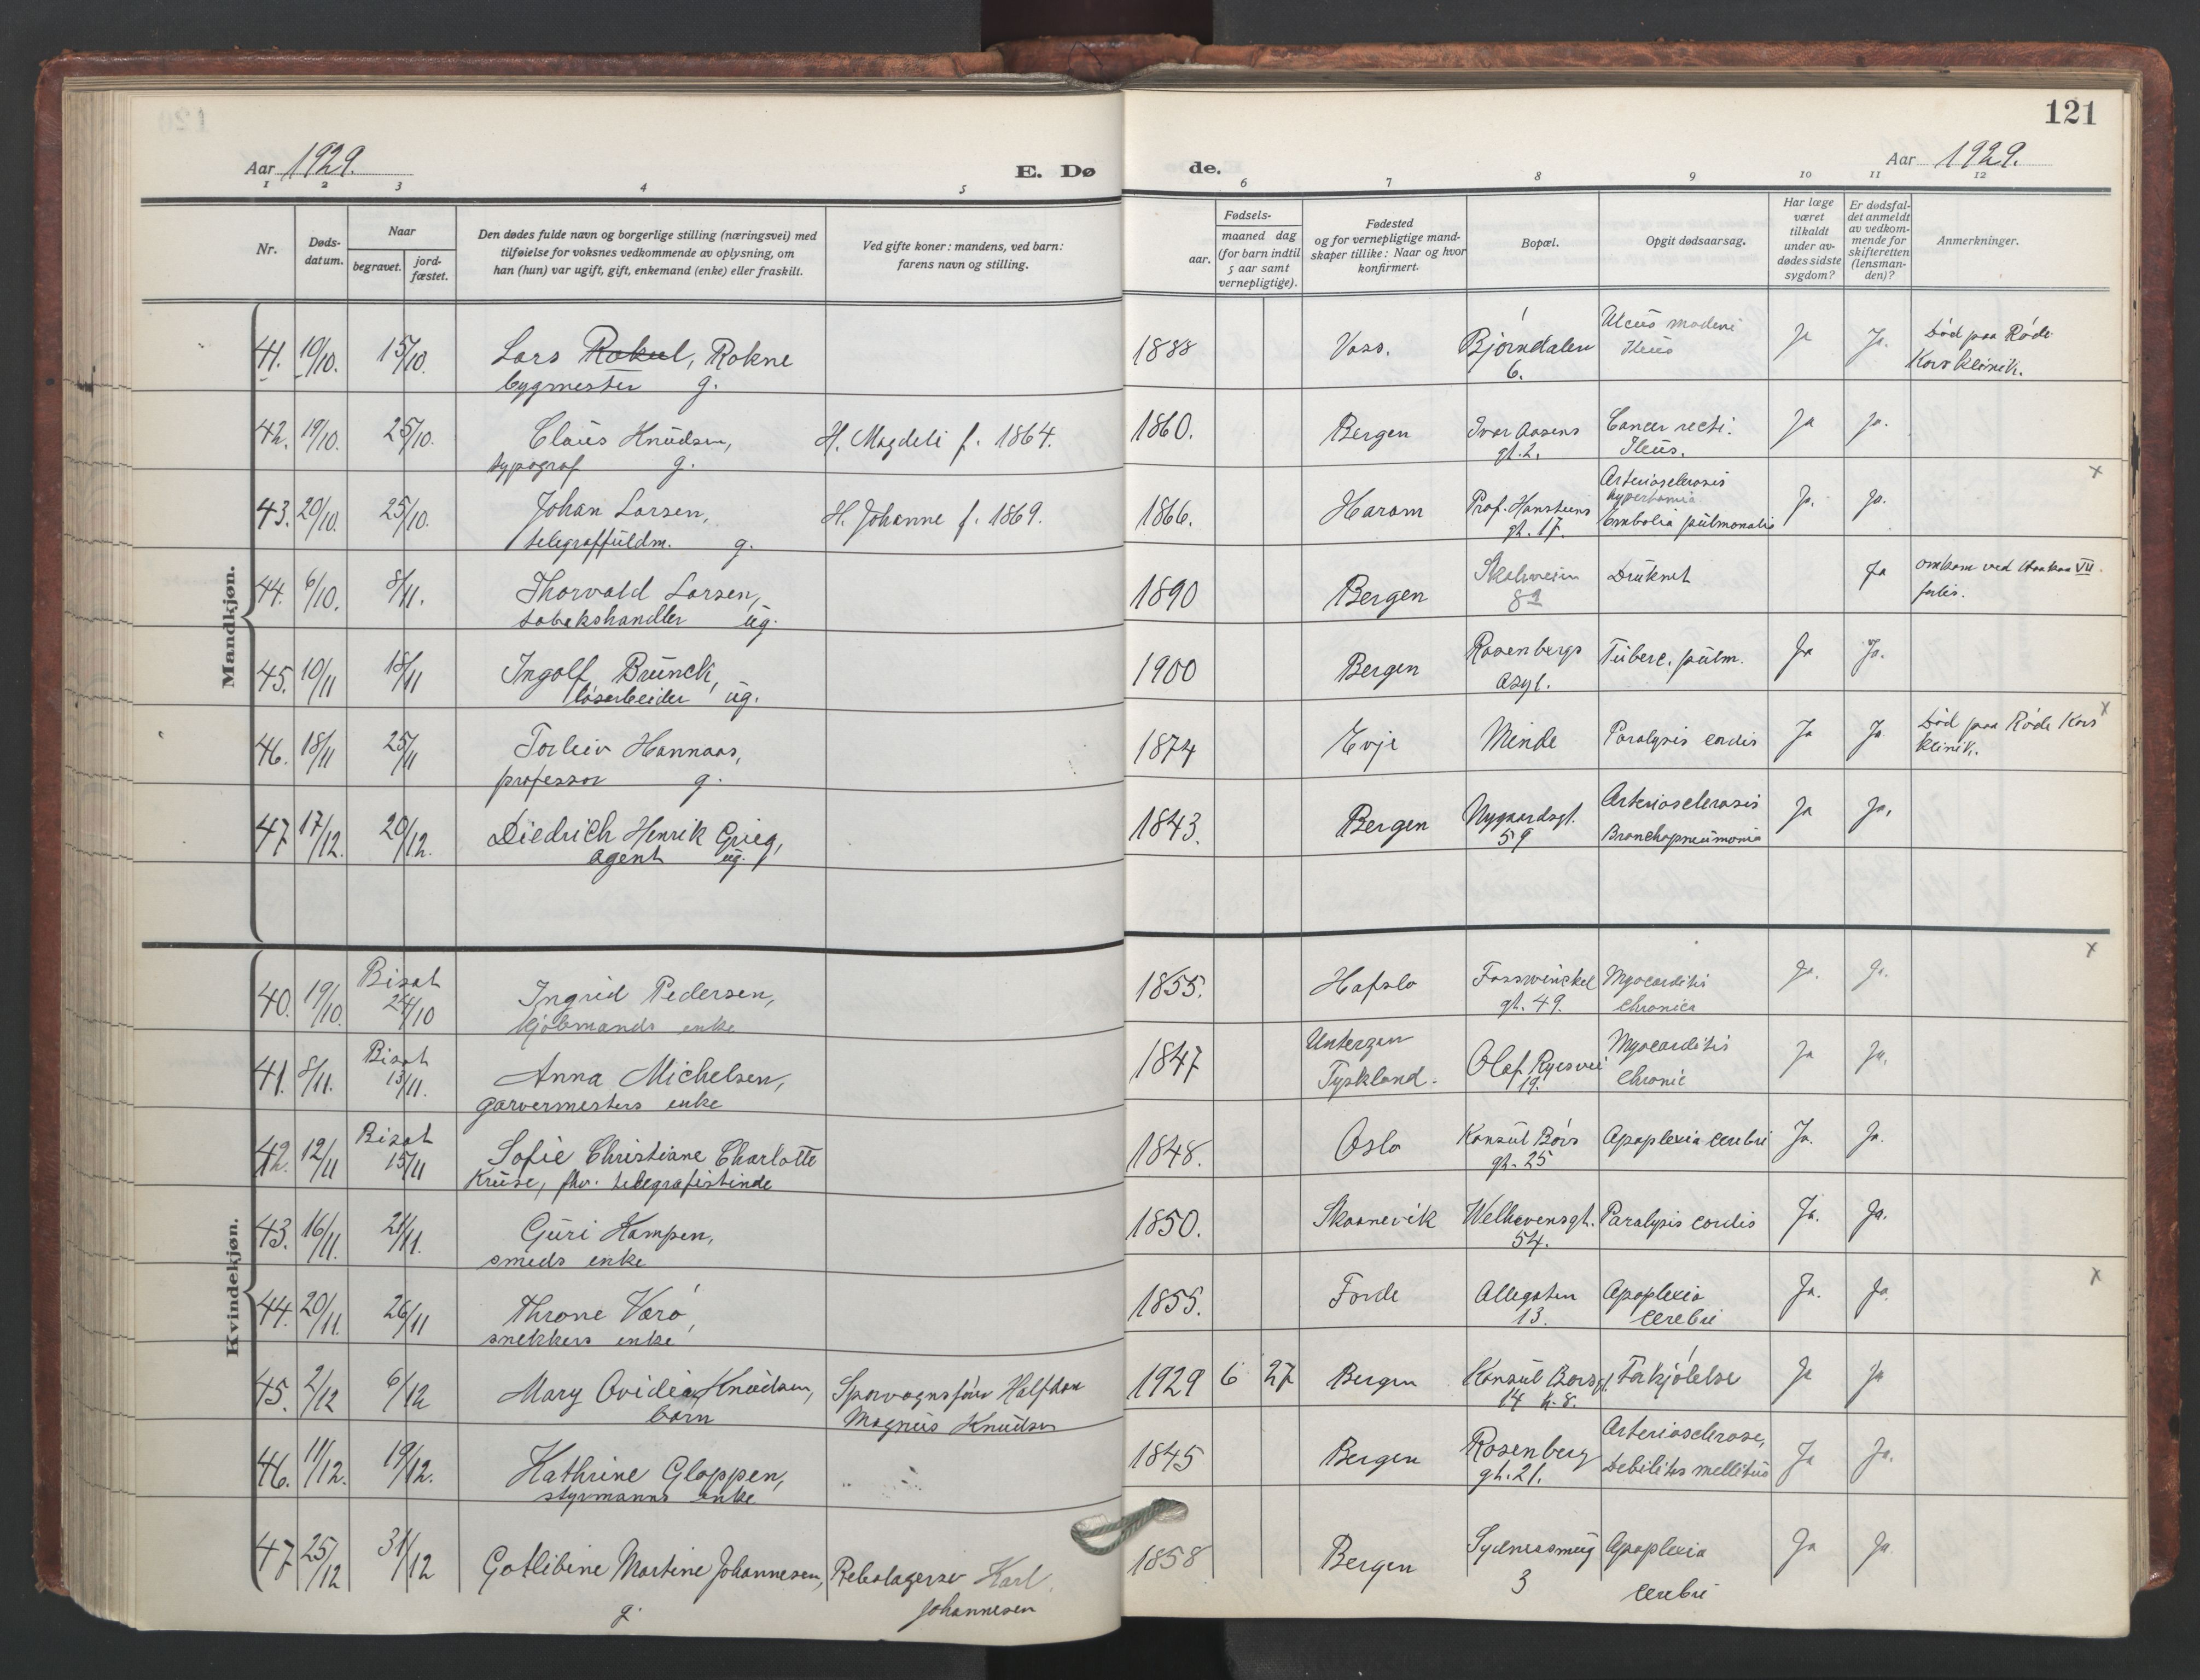 121
Aar 1929.
E. Dø
de.
Aar 1929.
1 2 3 4 5 6 7 8 9 10 11 12
Nr.
Døds-
datum.
Naar
begravet.
jord-
fæstet.
Den dødes fulde navn og borgerlige stilling (næringsvei) med
tilføielse for voksnes vedkommende av oplysning, om
han (hun) var ugift, gift, enkemand (enke) eller fraskilt.
Ved gifte koner: mandens, ved barn:
farens navn og stilling.
Fødsels-
aar.
maaned dag
(for barn indtil
5 aar samt
vernepligtige).
Fødested
og for vernepligtige mand-
skaper tillike: Naar og hvor
konfirmert.
Bopæl.
Opgit dødsaarsag.
Har læge
været
tilkaldt
under av-
dødes sidste
sygdom?
Er dødsfal-
det anmeldt
av vedkom-
mende for
skifteretten
(lensman-
den)?
Anmerkninger.
Mandkjøn.
41. 10/10. 15/10. Lars Rokne 1888 Voss. Bjørndalen Ja Ja. Død paa Røde
bygmester g. 6. Ileus Kors klinik.
42. 19/10. 25/10. Claus Knudsen, H. Magdeli f. 1864. 1860. Bergen Ivar Aasens Cancer recti. Ja Ja.
typograf g. gt. 2. Ileus.
43. 20/10. 25/10. Johan Larsen, H. Johanne f. 1869. 1866. Haram Prof. Hansteens Arteriosclerosis Ja. Ja. x
telegraffuldm. g. gt. 17. Embolia pulmonalis
44. 6/10. 8/11. Thorvald Larsen, 1890 Bergen Druknet Ja omkom ved Haakon VII
tobakshandler ug. forlis.
45. 10/11 18/11 Ingolf Brunck, 1900 Bergen Rosenbergs Tuberc. pulm. Ja Ja.
løsarbeider ug. asyl.
46. 18/11 25/11 Torleiv Hannaas, 1874 Evje Minde Paralysis cordis Ja Ja Død paa Røde Kors x
professor g. klinik.
47 17/12. 20/12. Diedrich Henrik Grieg, 1843. Bergen Nygaardsgt. Arteriosclerosis Ja Ja.
agent ug. 59 Bronchopneumonia
Kvindekjøn.
40. 19/10. Bisat 24/10 Ingrid Pedersen, 1855. Hafslo Fosswinckel Myocarditis Ja. Ja. x
kjøbmands enke gt. 49. chronica
41. 8/11. Bisat 13/11. Anna Michelsen, 1847 Tyskland. Olaf Ryesvei Myocarditis Ja Ja.
garvermesters enke 19. chronic
42. 12/11 Bisat 15/11 Sofie Christiane Charlotte 1848. Oslo Konsul Børs Apoplexia cerebri Ja. Ja.
Kruse, fhv. telegrafistinde gt. 25
43. 16/11. 21/11. Guri Kampen, 1850. Skaanevik Welhavensgt. Paralysis cordis Ja. Ja.
smeds enke 54.
44. 20/11. 26/11 Throne Værø, 1855. Førde Allegaten Apoplexia Ja. Ja. x
snekkers enke 13. cerebri
45. 2/12 6/12 Mary Ovidia Knudsen, Sporvognsfører Halfdan 1929 6 27 Bergen Konsul Børsg. Forkjølelse Ja Ja
barn Magnus Knudsen 14 k. 8.
46. 11/12. 19/12. Kathrine Gloppen, 1845 Bergen Rosenberg Arteriosclerose, Ja Ja.
styrmanns enke gt. 21. Debilitis mellitus
47 25/12 31/12 Gotlibine Martine Johannesen, Rebslagersv Karl 1858 Bergen Sydnessmug Apoplexia Ja Ja
g. Johannesen 3 cerebri